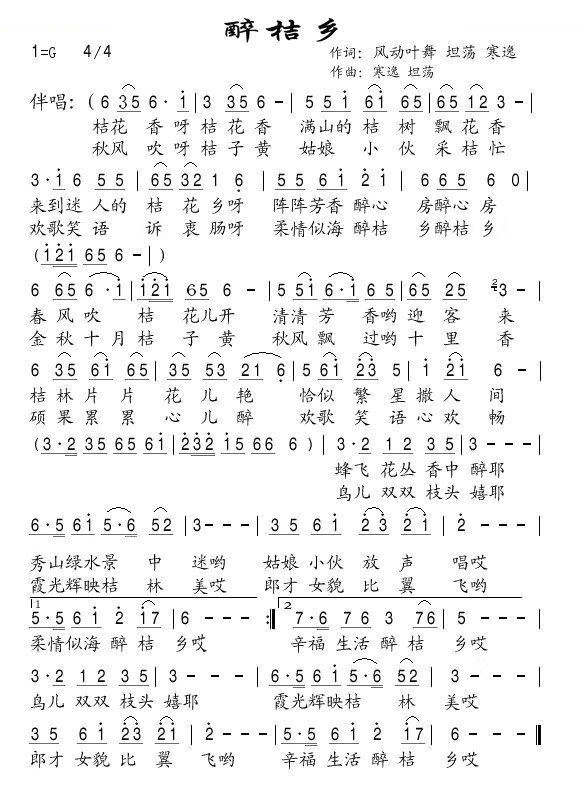 醉桔乡
1=G 4/4 作词：风动叶舞 坦荡 寒逸
作曲：寒逸 坦荡
伴唱：(6 35 6·i|3 356-|551 61 65|65123-|
桔花 香呀桔花香 满山的桔树飘花香
秋风 吹呀桔子黄 姑娘小伙采桔忙
3·i6 55|65 32 1 6|551 61 2 i|6 65 6 0|
来到迷人的桔花乡呀 阵阵芳香醉心 房醉心房
欢歌笑语诉衷肠呀 柔情似海醉桔 乡醉桔乡
(i2i 65 6-|)
6 65 6·i|i2i 65 6-|5 551 6·i 65|65 25 3-|
春风吹 桔 花儿开 清清芳 香哟迎客来
金秋十月桔子黄 秋风飘 过哟十里香
6 35 3 6 1 6|35 53 21 6|5 61 23 5|1 21 6-|
桔林片片花儿艳 恰似繁星撒人间
硕果累累心儿醉 欢歌笑语心欢畅
(3·2 35 65 61|232 15 66 6)|3·2 12 35|3---|
蜂飞花丛香中醉耶
鸟儿双双枝头嬉耶
6·5 61 5·6 52|3---|35 61 23 21|2---|
秀山绿水景中迷哟 姑娘小伙放声唱哎
霞光辉映桔林美哎 郎才女貌比翼飞哟
1 5·5 61 2 17|6---:‖2 7·6 76 3 76|5---|
柔情似海醉桔乡哎 辛福生活醉桔乡哎
3·2 12 35|3---|6·5 61 5·6 52|3---|
鸟儿双双枝头嬉耶 霞光辉映桔林美哎
35 61 23 21|2---|5·5 61 2 17|6---‖
郎才女貌比翼飞哟 辛福生活醉桔乡哎